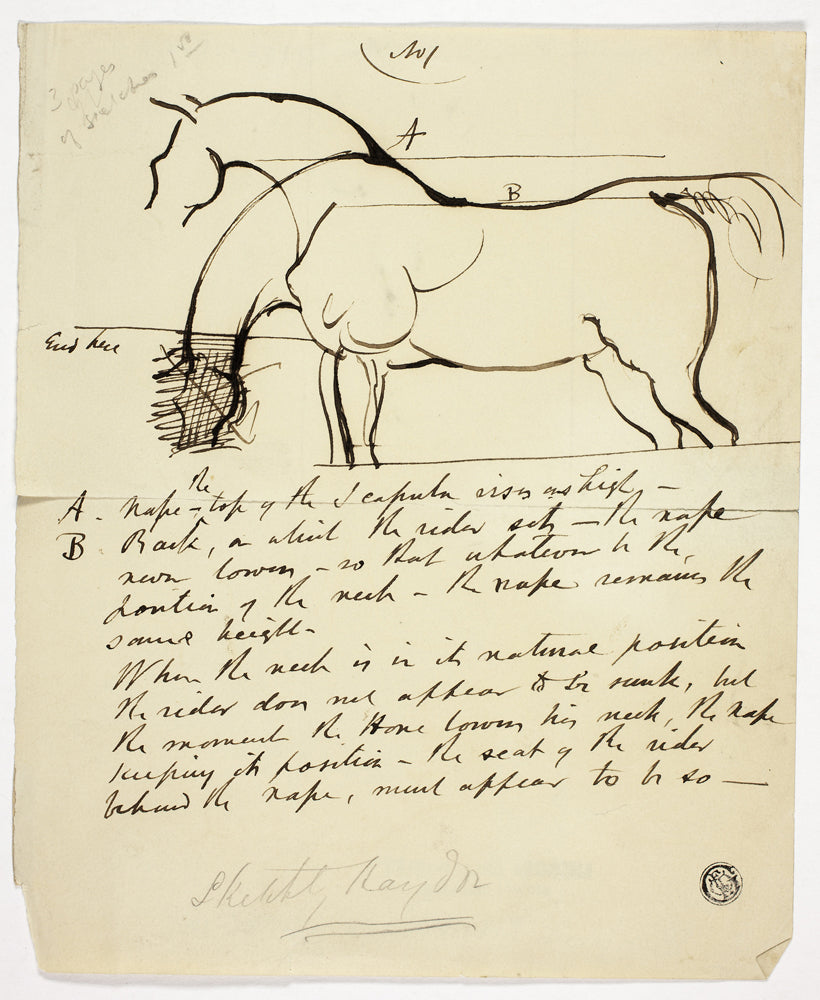 No 1
3 pages
of sketches 1 vo
A
B
End here
the
A - Nape - top of the Scapula rises as high -
B Back, on which the rider sits - the nape
never lowers - so that whatever be the
position of the neck - the nape remains the
same height -
When the neck is in its natural position
the rider does not appear to be sunk, but
the moment the Horse lowers his neck, the nape
keeping its position - the seat of the rider
behind the nape, must appear to be so -
Sketch by Haydon